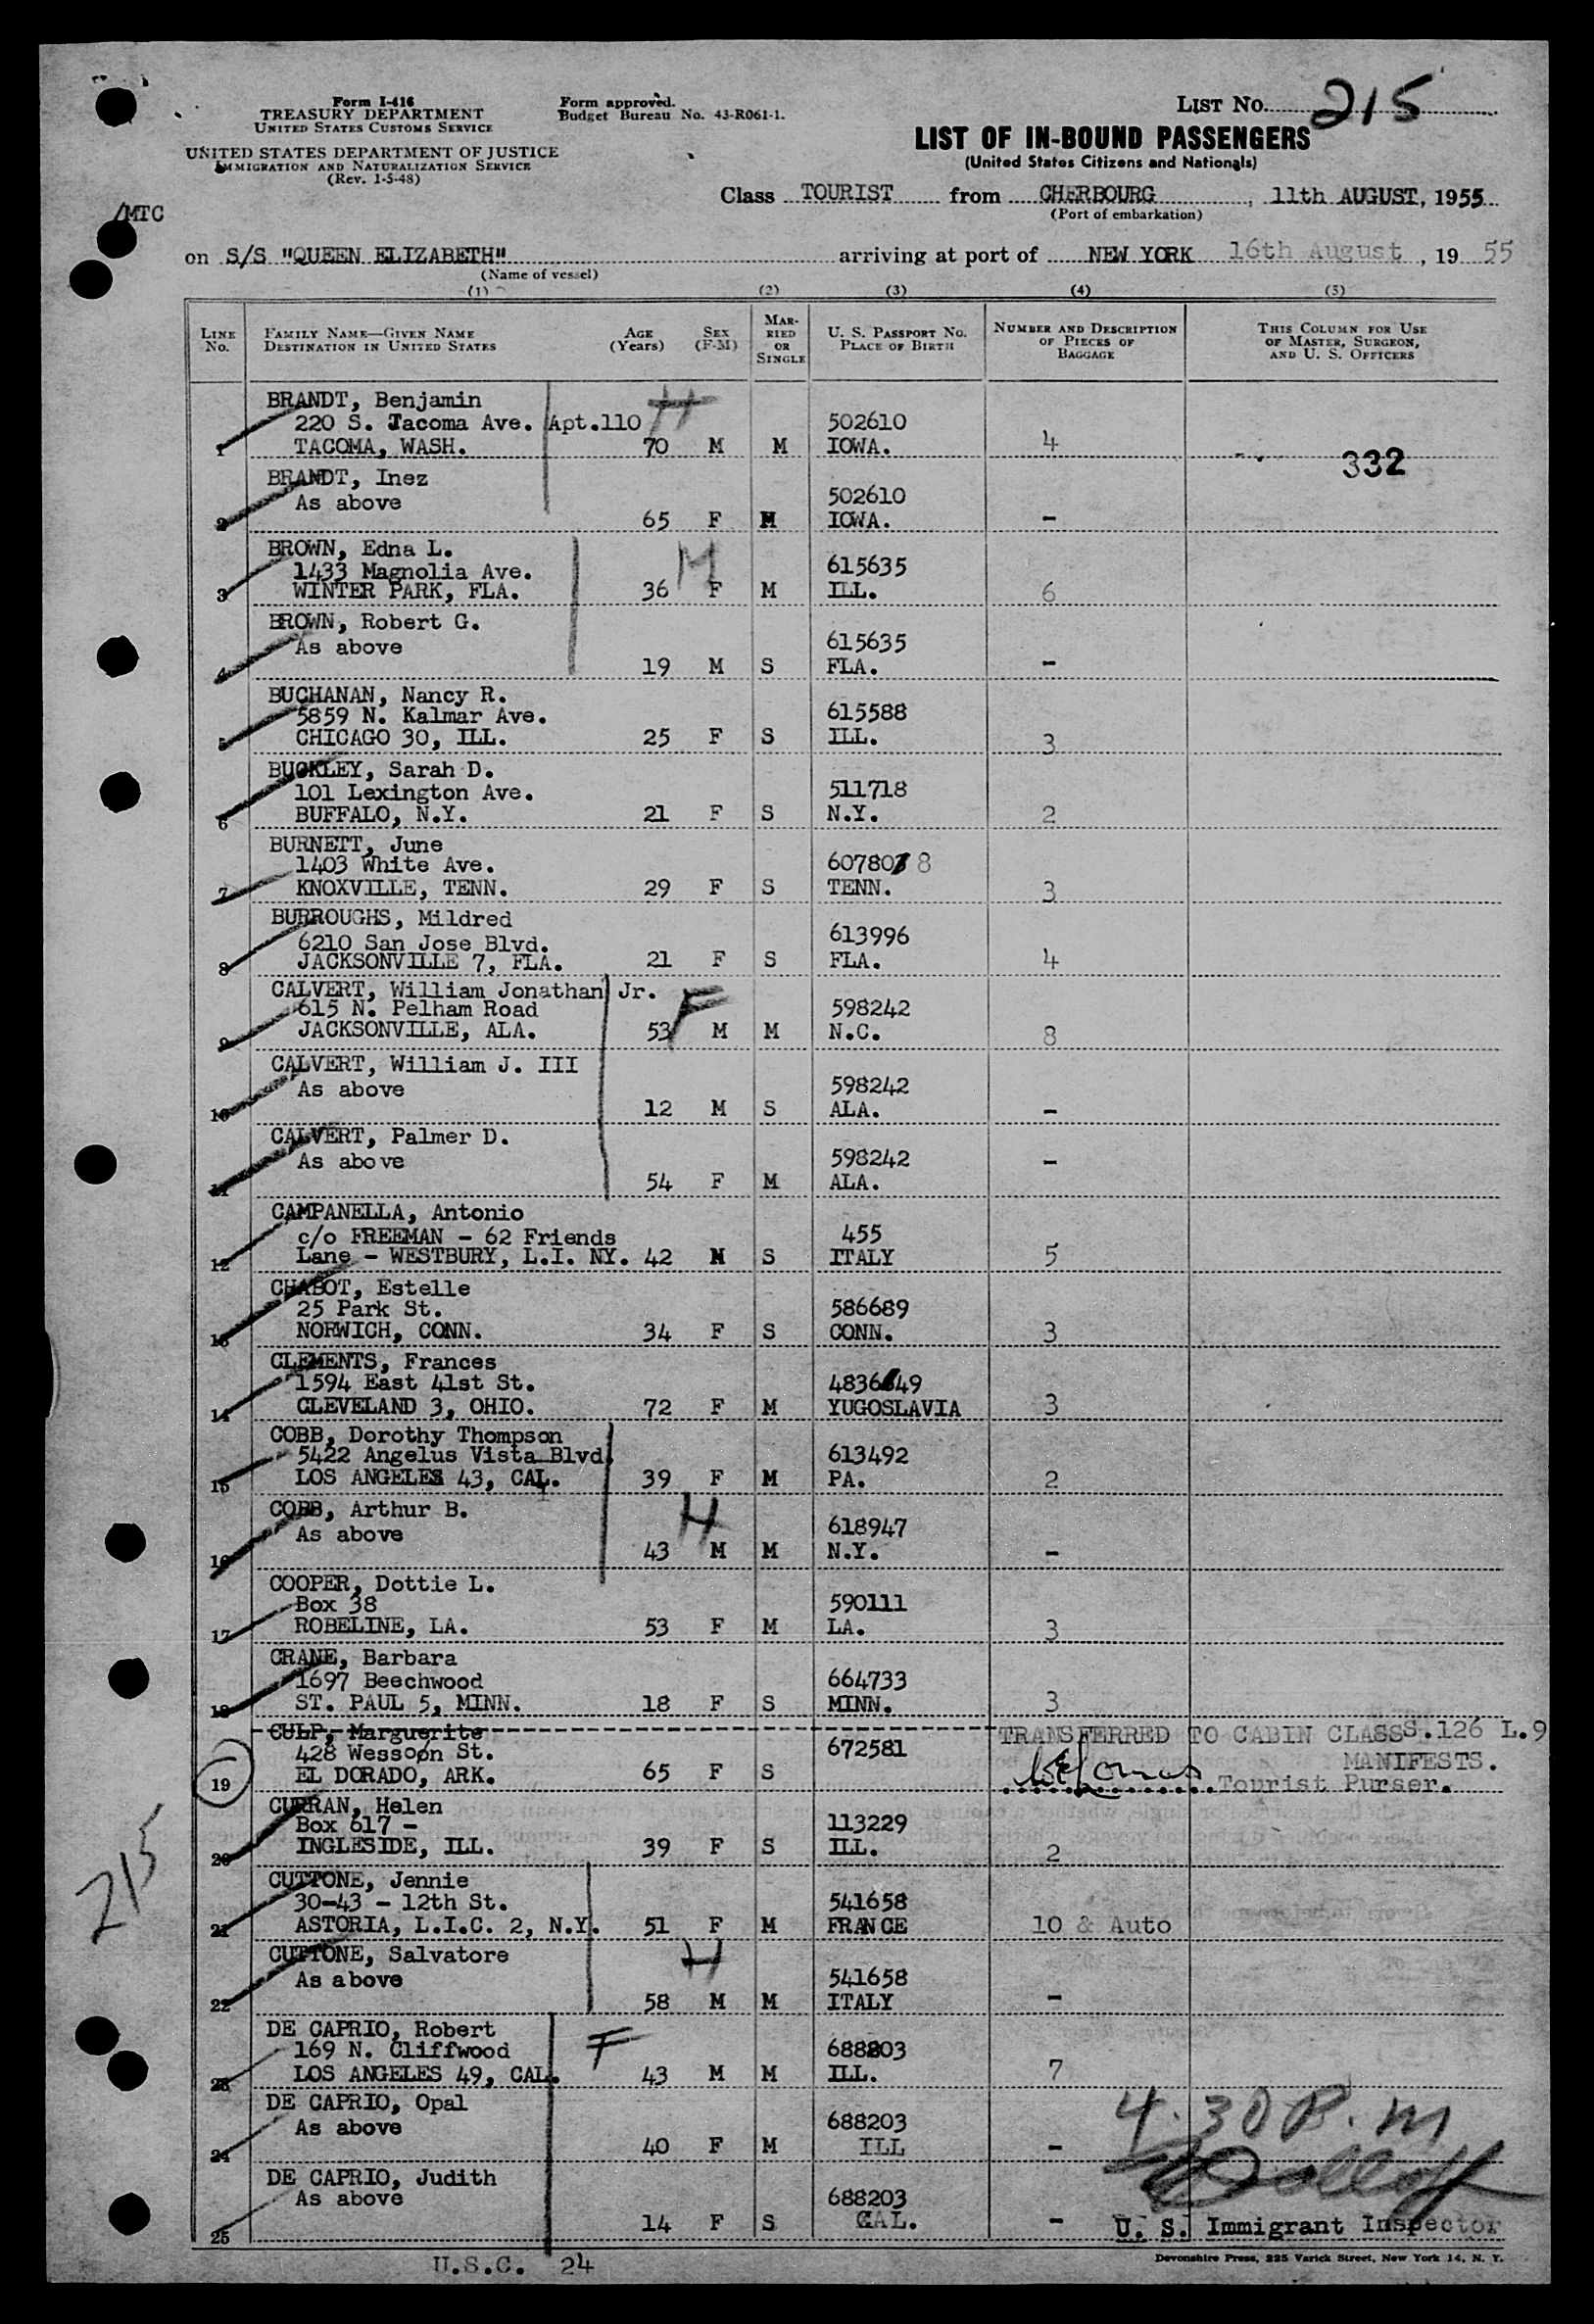 Form I-416
TREASURY DEPARTMENT
UNITED STATES CUSTOMS SERVICE
UNITED STATES DEPARTMENT OF JUSTICE
IMMIGRATION AND NATURALIZATION SERVICE
(Rev. 1-5-48)
Form approved.
Budget Bureau No. 43-R061-1.
LIST No. 215
LIST OF IN-BOUND PASSENGERS
(United States Citizens and Nationals)
/MTC
Class TOURIST from CHERBOURG, 11th AUGUST, 1955
(Port of embarkation)
on S/S "QUEEN ELIZABETH" arriving at port of NEW YORK 16th August, 19 55
(Name of vessel)
(1) (2) (3) (4) (5)
LINE No.
FAMILY NAME—GIVEN NAME
DESTINATION IN UNITED STATES
AGE (Years)
SEX (F-M)
MARRIED OR SINGLE
U. S. PASSPORT NO.
PLACE OF BIRTH
NUMBER AND DESCRIPTION OF PIECES OF BAGGAGE
THIS COLUMN FOR USE OF MASTER, SURGEON, AND U. S. OFFICERS
BRANDT, Benjamin H
220 S. Tacoma Ave. Apt.110 502610
1 TACOMA, WASH. 70 M M IOWA. 4
332
BRANDT, Inez
As above 502610
2 65 F M IOWA. -
BROWN, Edna L. M
1433 Magnolia Ave. 615635
3 WINTER PARK, FLA. 36 F M ILL. 6
BROWN, Robert G.
As above 615635
4 19 M S FLA. -
BUCHANAN, Nancy R.
5859 N. Kalmar Ave. 615588
5 CHICAGO 30, ILL. 25 F S ILL. 3
BUCKLEY, Sarah D.
101 Lexington Ave. 511718
6 BUFFALO, N.Y. 21 F S N.Y. 2
BURNETT, June
1403 White Ave. 60780 8
7 KNOXVILLE, TENN. 29 F S TENN. 3
BURROUGHS, Mildred
6210 San Jose Blvd. 613996
8 JACKSONVILLE 7, FLA. 21 F S FLA. 4
CALVERT, William Jonathan Jr. F
615 N. Pelham Road 598242
9 JACKSONVILLE, ALA. 53 M M N.C. 8
CALVERT, William J. III
As above 598242
10 12 M S ALA. -
CALVERT, Palmer D.
As above 598242 -
11 54 F M ALA.
CAMPANELLA, Antonio
c/o FREEMAN - 62 Friends 455
12 Lane - WESTBURY, L.I. NY. 42 M S ITALY 5
CHABOT, Estelle
25 Park St. 586689
13 NORWICH, CONN. 34 F S CONN. 3
CLEMENTS, Frances
1594 East 41st St. 4836 49
14 CLEVELAND 3, OHIO. 72 F M YUGOSLAVIA 3
COBB, Dorothy Thompson
5422 Angelus Vista Blvd. 613492
15 LOS ANGELES 43, CAL. 39 F M PA. 2
COBB, Arthur B. H
As above 618947
16 43 M M N.Y. -
COOPER, Dottie L.
Box 38 590111
17 ROBELINE, LA. 53 F M LA. 3
CRANE, Barbara
1697 Beechwood 664733
18 ST. PAUL 5, MINN. 18 F S MINN. 3
CULP, Marguerite TRANSFERRED TO CABIN CLASS S.126 L.9
428 Wesson St. 672581 MANIFESTS.
19 EL DORADO, ARK. 65 F S Tourist Purser.
CURRAN, Helen
Box 617 - 113229
20 INGLESIDE, ILL. 39 F S ILL. 2
215
CUTTONE, Jennie
30-43 - 12th St. 541658
21 ASTORIA, L.I.C. 2, N.Y. 51 F M FRANCE 10 & Auto
CUTTONE, Salvatore H
As above 541658
22 58 M M ITALY -
DE CAPRIO, Robert F
169 N. Cliffwood 688203
23 LOS ANGELES 49, CAL. 43 M M ILL. 7
DE CAPRIO, Opal 4.30 P.m
As above 688203
24 40 F M ILL -
DE CAPRIO, Judith
As above 688203
25 14 F S CAL. - U. S. Immigrant Inspector
U.S.C. 24
Devonshire Press, 225 Varick Street, New York 14, N. Y.